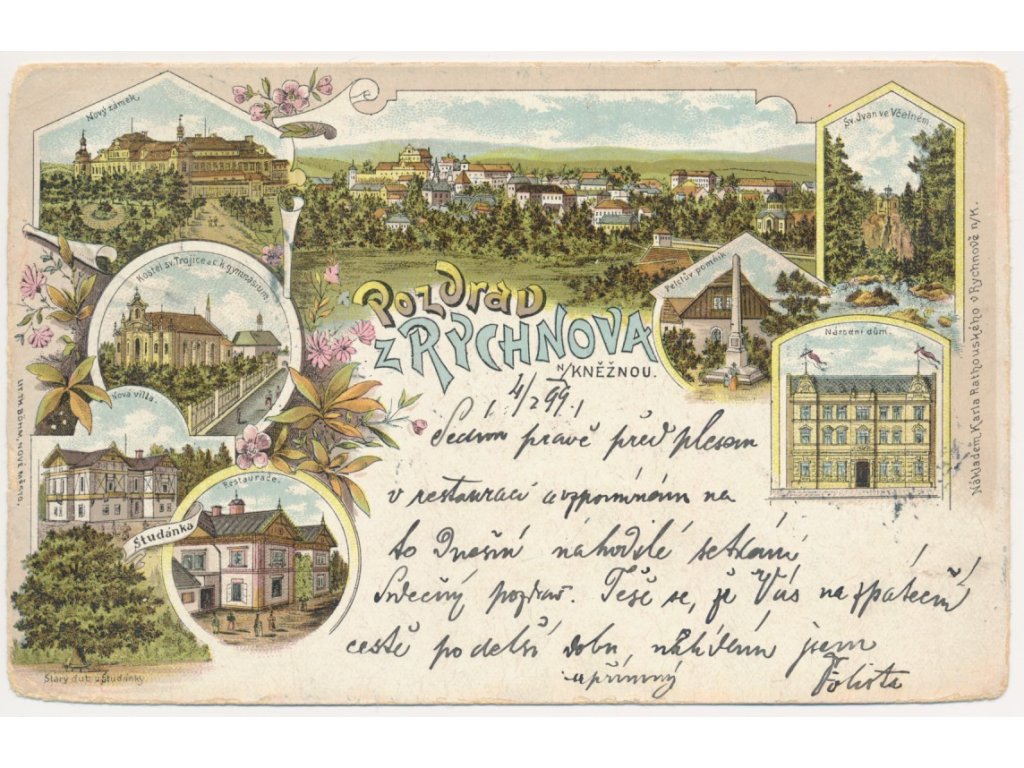 Nový zámek.
Sv. Ivan ve Včelném.
Kostel sv. Trojice a c. k. gymnasium.
Pelclův pomník
Pozdrav
z RYCHNOVA
N/KNĚŽNOU.
Národní dům.
Nákladem Karla Rathouského v Rychnově n/K.
Nová villa.
LITH. BÖHM, NOVÉ MĚSTO.
Restaurace.
Studánka
Starý dub u Studánky.
4/2 99
Sedím právě před plesem
v restauraci a vzpomínám na
to dnešní náhodilé setkání
Srdečný pozdrav. Těše se, že Vás na zpáteční
cestě po delší dobu jsem
upřímný